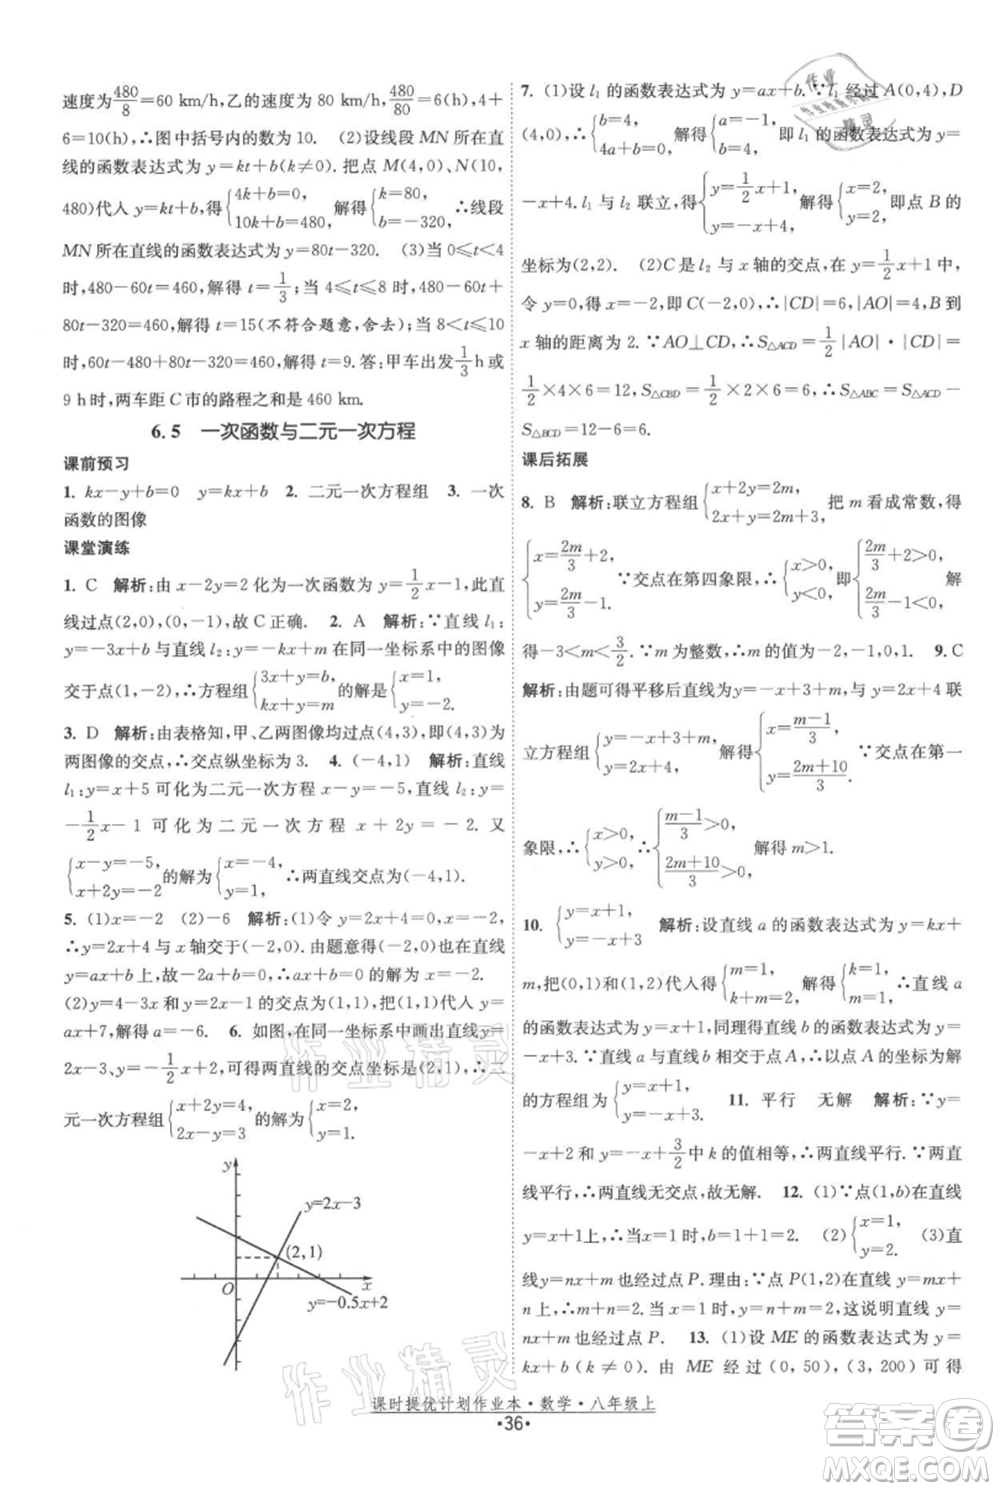 速度为480/8=60 km/h,乙的速度为 80 km/h,480/80=6,4+
6=10(h),∴图中括号内的数为 10. (2)设线段 MN 所在直
线的函数表达式为 y=kt+b(k≠0). 把点 M(4,0)、N(10,
480)代人 y=kt+b,得{4k+b=0, 10k+b=480, 解得{k=80, b=-320, ∴线段
MN 所在直线的函数表达式为 y=80t-320. (3)当 0≤t<4
时,480-60t=460,解得 t=1/3;当 4≤t≤8 时,480-60t+
80t-320=460,解得 t=15(不符合题意,舍去);当 8<t≤10
时,60t-480+80t-320=460,解得 t=9. 答:甲车出发1/3h 或
9 h时,两车距 C 市的路程之和是 460 km.
6.5 一次函数与二元一次方程
课前预习
1. kx-y+b=0 y=kx+b 2. 二元一次方程组 3. 一次
函数的图像
课堂演练
1. C 解析:由 x-2y=2 化为一次函数为 y=1/2x-1,此直
线过点(2,0),(0,-1),故 C 正确. 2. A 解析:∵直线 l₁:
y=-3x+b 与直线 l₂:y=-kx+m 在同一坐标系中的图像
交于点(1,-2),∴方程组{3x+y=b, kx+y=m 的解为{x=1, y=-2.
3. D 解析:由表格知,甲、乙两图像均过点(4,3),即(4,3)
为两图像交点,∴交点纵坐标为 3. 4. (-4,1) 解析:直线
l₁:y=x+5 可化为二元一次方程 x-y=-5,直线 l₂:y=
-1/2x-1 可化为二元一次方程 x+2y=-2. 又
{x-y=-5, x+2y=-2 的解为{x=-4, y=1, ∴两直线交点为(-4,1).
5. (1)x=-2 (2)-6 解析:(1)令 y=0,2x+4=0,x=-2,
∴y=2x+4 与 x 轴交于(-2,0). 由题意得(-2,0)在直线
y=ax+b 上,故-2a+b=0,∴ax+b=0 的解为 x=-2.
(2)y=4-3x 与 y=2x-1 的交点为(1,1),把(1,1)代人 y=
ax+7,解得 a=-6. 6. 如图,在同一坐标系中画出直线y=
2x-3,y=-1/2x+2,可得两直线交点坐标为(2,1),∴二
元一次方程组{x+2y=4, 2x-y=3 的解为{x=2, y=1.
y
y=2x-3
(2,1)
O
x
y=-0.5x+2
7. (1)设 l₁ 的函数表达式为 y=ax+b. ∵l₁ 经过 A(0,4),D
(4,0),∴{b=4, 4a+b=0, 解得{a=-1, b=4, 即 l₁ 的函数表达式为 y=
-x+4. l₁ 与 l₂ 联立,得{y=1/2x+1, y=-x+4, 解得{x=2, y=2, 即点 B 的
坐标为(2,2). (2)C是 l₂ 与 x 轴的交点,在 y=1/2x+1 中,
令 y=0,得 x=-2,即 C(-2,0),∴|CD|=6,|AO|=4,B 到
x 轴的距离为 2. ∵AO⊥CD,∴S△ACD=1/2|AO|·|CD|=
1/2×4×6=12,S△CBD=1/2×2×6=6,∴S△ABC=S△ACD-
S△BCD=12-6=6.
课后拓展
8. B 解析:联立方程组{x+2y=2m, 2x+y=m+6, 把 m 看成常数,得
{x=2m/3... y=m/3+2... 
{x=2m/3+2, y=2m/3-1. ∵交点在第四象限,∴{x>0, y<0, 即 解
得-3<m<3/2. ∵m 为整数,∴m 的值为-2,-1,0,1. 9. C
解析:由题可得平移后直线为y=-x+3+m,与 y=2x+4 联
立方程组{y=-x+3+m, y=2x+4, 解得{x=(m-1)/3, y=(2m+10)/3. ∵交点在第一
象限,∴{x>0, y>0, ∴{(m-1)/3>0, (2m+10)/3>0, 解得 m>1.
10. {y=x+1, y=-x+3 解析:设直线 a 的函数表达式为 y=kx+
m(k≠0),把(0,1)和(1,2)代人得{m=1, k+m=2, ∴直线 a
的函数表达式为 y=x+1,同理得直线 b 的函数表达式为 y=
-x+3. ∵直线 a 与直线b 交于点 A,∴以点 A 的坐标为解
的方程组为{y=x+1, y=-x+3. 11. 平行 无解 解析:∵y=
-x-1 和 y=-x+3/2中 k 值相等,∴两直线平行. ∵两直线
平行,∴两直线无交点,故无解. 12. (1)∵点(1,b)在直线
y=x+1 上,∴当 x=1 时,b=1+1=2. (2){x=1, y=2. (3)直
线y=nx+m 也经过点 P. 理由:∵点 P(1,2)在直线 y=mx+
n 上,∴m+n=2,∴当 x=1 时,y=n+m=2,这说明直线 y=
nx+m 也经过点 P. 13. (1)设 ME 的函数表达式为 y=
kx+b(k≠0). 由 ME 经过(0,50),(3,200)可得
课时提优计划作业本·数学·八年级上
·36·
作业精灵
作业精灵
答案圈
MXQE.COM